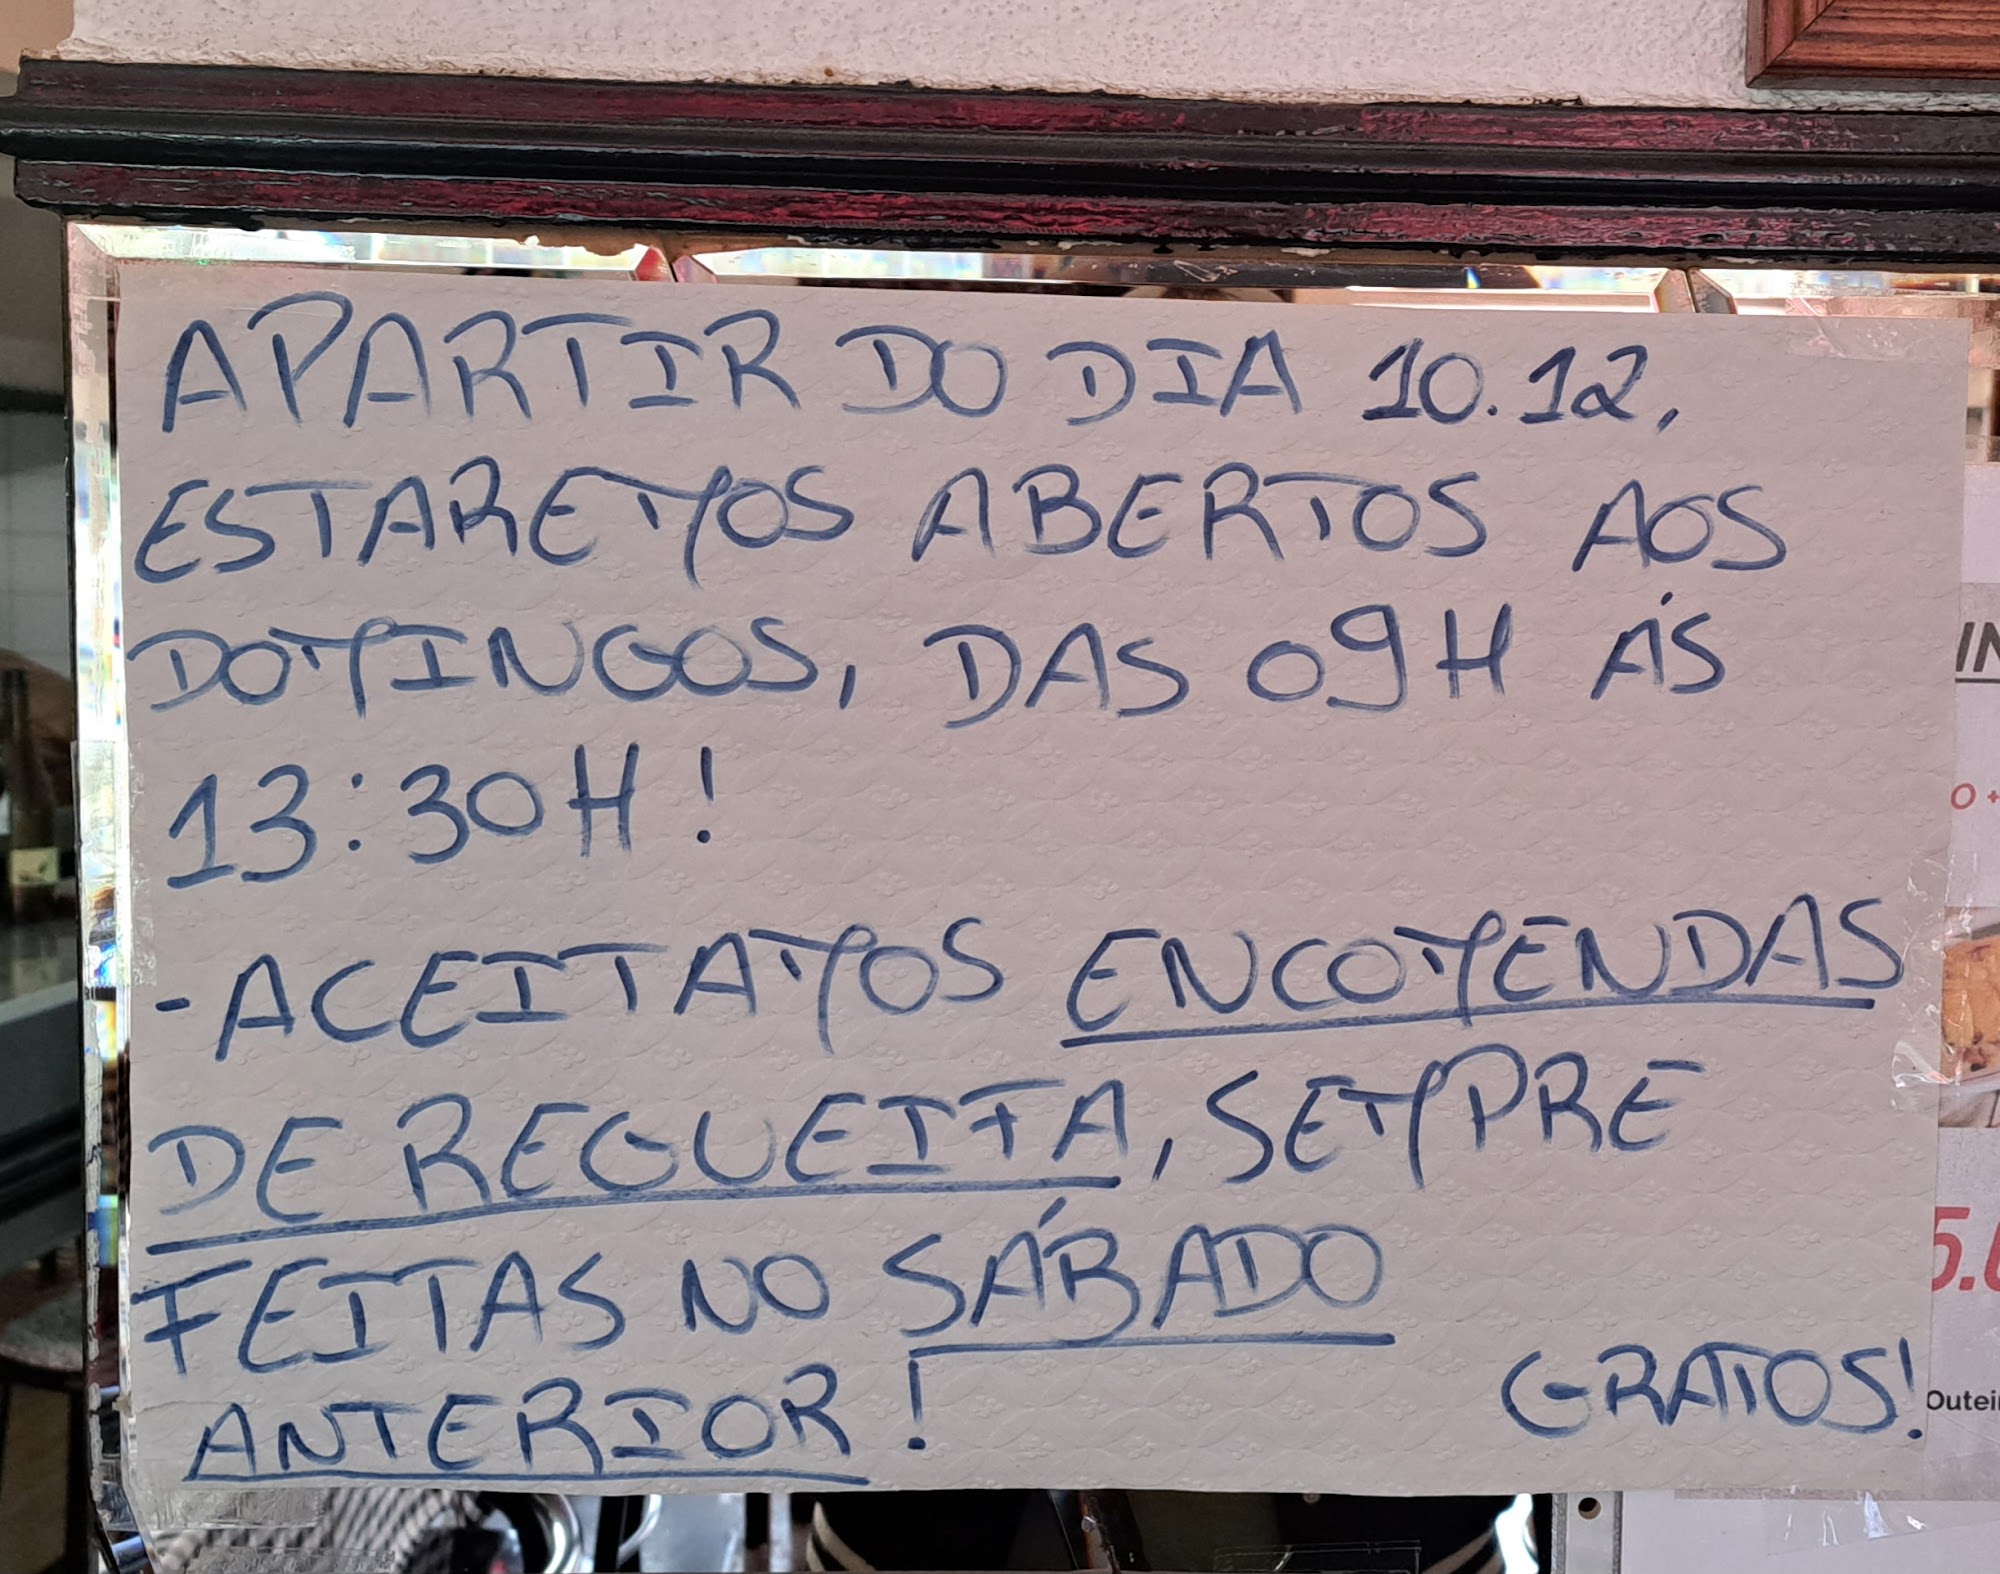 APARTIR DO DIA 10.12,
ESTAREMOS ABERTOS AOS
DOMINGOS, DAS 09H ÁS
13:30H!
-ACEITAMOS ENCOMENDAS
DE REGUEIFA, SEMPRE
FEITAS NO SÁBADO
ANTERIOR!
GRATOS!